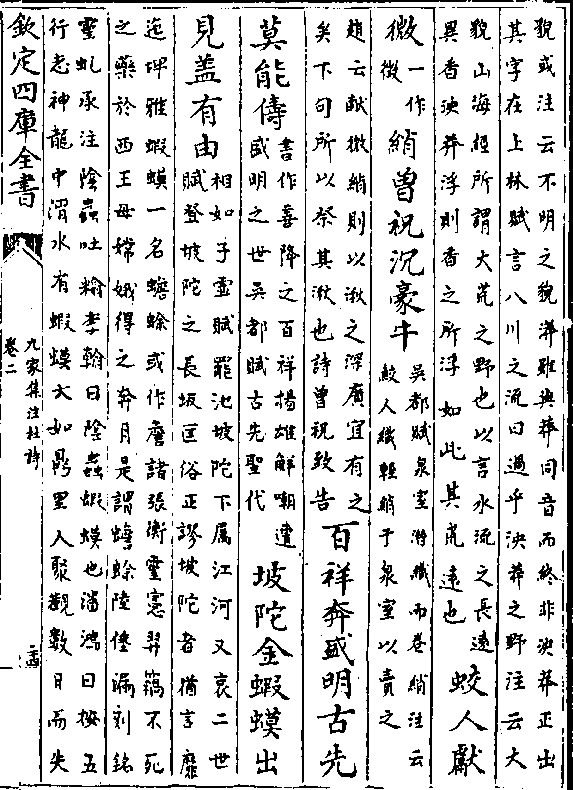 貌或注云不明之貌漭雖與莽同音而終非泱莽正出
其字在上林賦言八川之流曰過乎泱莽之野注云大
貌山海經所謂大荒之野也以言水流之長遠
異香泱莽浮則香之所浮如此其荒遠也
蛟人獻
微
一作
微
綃曾祝沉豪牛
吳都賦泉室潛織而卷綃注云
鮫人織輕綃于泉室以賣之
趙云獻微綃則以湫之深廣宜有之
矣下句所以祭其湫也詩曾祝致告
百祥奔盛明古先
莫能儔
書作善降之百祥揚雄解嘲遭
盛明之世吳都賦古先聖代
坡陀金蝦蟆出
見盖有由
相如子虛賦罷池坡陀下属江河又哀二世
賦登坡陀之長坂匡俗正謬坡陀者猶言靡
迤埤雅蝦蟆一名蟾蜍或作詹諸張衡靈憲羿竊不死
之藥於西王母嫦娥得之奔月是謂蟾蜍陸倕漏刻銘
靈虬承注陰蟲吐翰李翰曰陰蟲蝦蟆也潘鴻曰按五
行志神龍中渭水有蝦蟆大如鼎里人聚觀數日而失
欽定四庫全書
九家集注杜詩
卷二